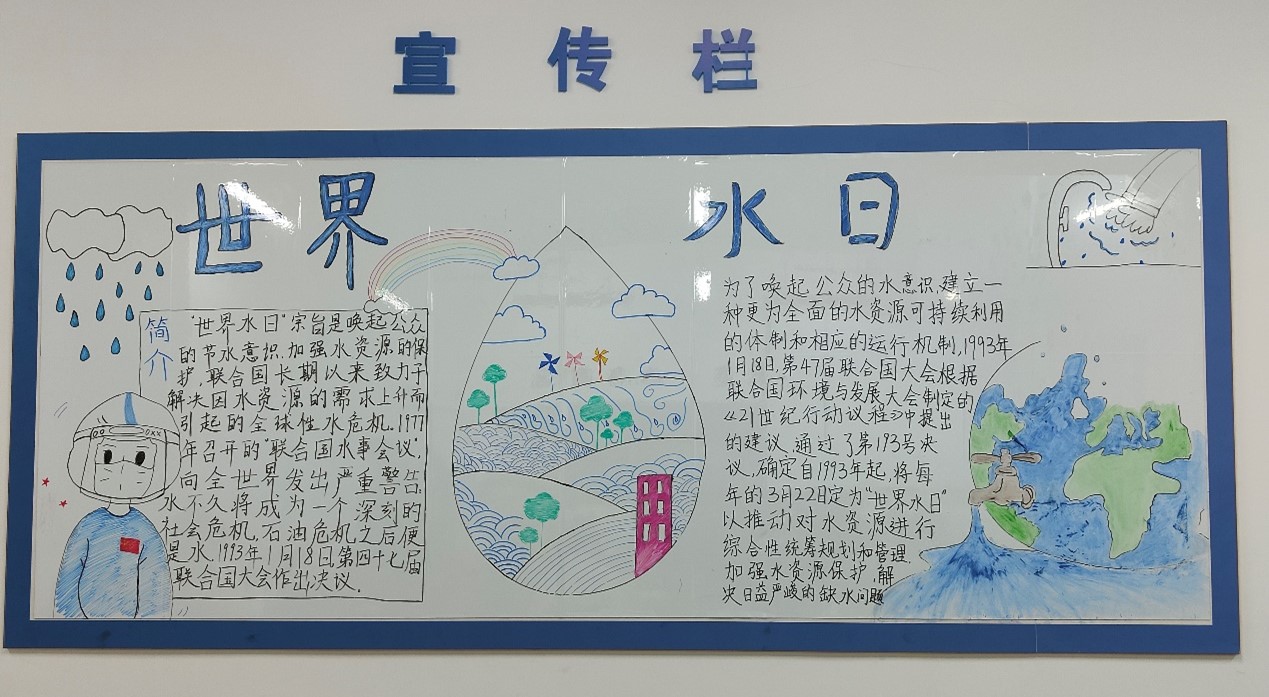 宣传栏
世界水日
简介
"世界水日"宗旨是唤起公众
的节水意识,加强水资源的保
护,联合国长期以来致力于
解决因水资源的需求上升而
引起的全球性水危机.1977
年召开的"联合国水事会议",
向全世界发出严重警告,
水不久将成为一个深刻的
社会危机,石油危机之后便
是水.1993年1月18日,第四十七届
联合国大会作出决议.
为了唤起公众的水意识,建立一
种更为全面的水资源可持续利用
的体制和相应的运行机制,1993年
1月18日,第47届联合国大会根据
联合国环境与发展大会制定的
《21世纪行动议程》中提出
的建议,通过了第193号决
议,确定自1993年起,将每
年的3月22日定为"世界水日"
以推动对水资源进行
综合性统筹规划和管理,
加强水资源保护,解
决日益严峻的缺水问题